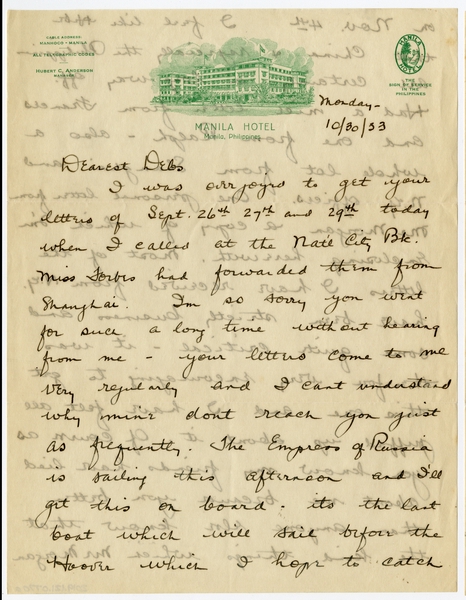 CABLE ADDRESS:
MANHOCO - MANILA
ALL TELEGRAPHIC CODES
HUBERT C. ANDERSON
MANAGER
MANILA HOTEL
THE
SIGN OF SERVICE
IN THE
PHILIPPINES
MANILA HOTEL
Manila, Philippines
Monday-
10/30/33
Dearest Debs
I was overjoyed to get your
letters of Sept. 26th 27th and 29th today
when I called at the Natl City Bk.
Miss Forbes had forwarded them from
Shanghai. I'm so sorry you went
for such a long time without hearing
from me - your letters come to me
very regularly and I cant understand
why mine dont reach you just
as frequently. The Empress of Russia
is sailing this afternoon and I'll
get this on board - its the last
boat which will sail before the
Hoover which I hope to catch